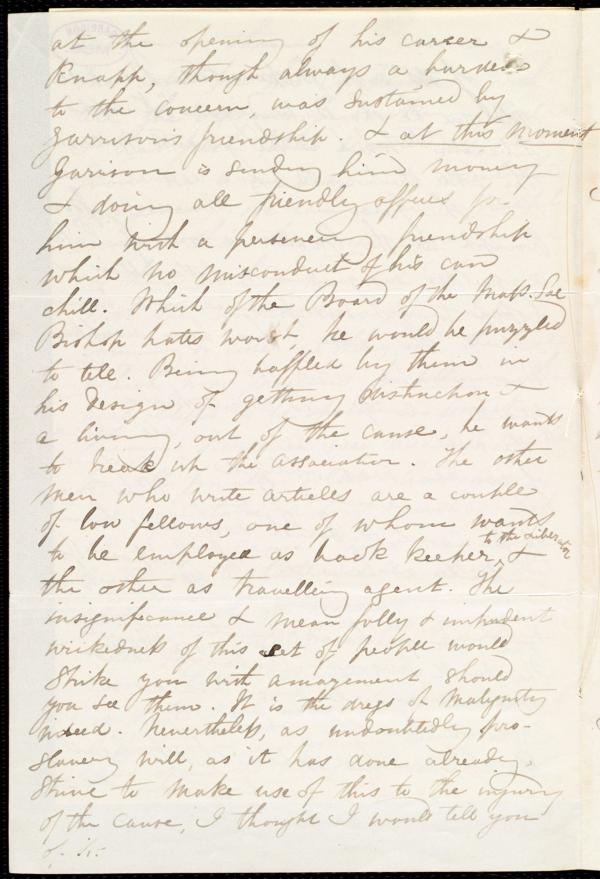 at the opening of his career &
Knapp, though always a burden
to the concern, was sustained by
Garrison's friendship. & at this moment
Garrison is sending him money
& doing all friendly offices for
him with a persevering friendship
which no misconduct of his can
chill. Which of the Board of the Mass. Soc
Bishop hates worst, he would be puzzled
to tell. Being baffled by them in
his design of getting distinction &
a living, out of the cause, he wants
to break up the association. The other
men who write articles are a couple
of low fellows, one of whom wants
to be employed as book keeper to the Liberator, &
the other as travelling agent. The
insignificance & mean folly & impudent
wickedness of this set of people would
strike you with amazement should
you see them. It is the dregs of malignity
indeed. Nevertheless, as undoubtedly pro-
slavery will, as it has done already,
strive to make use of this to the injury
of the cause, I thought I would tell you
of it.